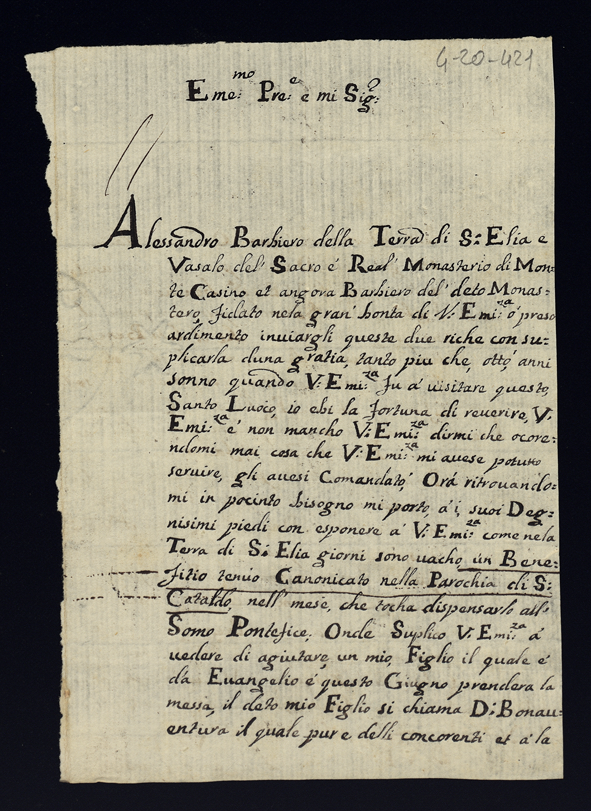 4-20-421
Eme:mo Pre:e e mi Sig:o
Alessandro Barbiero della Terra di S: Elia e
Vasalo del' Sacro é Real' Monasterio di Mon-
te Casino et angora Barbiero del' deto Monas-
tero, fidato nela gran' bonta di V: Emi:za ó preso
ardimento inuiargli queste due riche con su-
plicarla duna gratia, tanto piu che, otto, anni
sonno quando V: Emi:za fu a' uisitare questo,
Santo Luoco, io ebi la fortuna di reuerire, V:
Emi:za é non mancho V: Emi:za dirmi che ocore-
ndomi mai cosa che V: Emi:za mi auese potutto
seruire, gli auesi Comandato, Orá ritrouando-
mi in pocinto bisogno mi porto, á i, suoi Deg-
nisimi piedi con esponere á V: Emi:za come nela
Terra di S: Elia giorni sono uacho, un Bene-
fitio tenuo Canonicato nella Parochia di S:
Cataldo, nell' mese, che tocha dispensarlo all'
Somo Pontefice, Onde Suplico V: Emi:za á
uedere di agiutare, un mio, Figlio il quale é
da Euangelio é questo Giugno prendera la
messa, il deto mio Figlio si chiama D: Bonau-
entura il quale pur e delli concorenti et á la